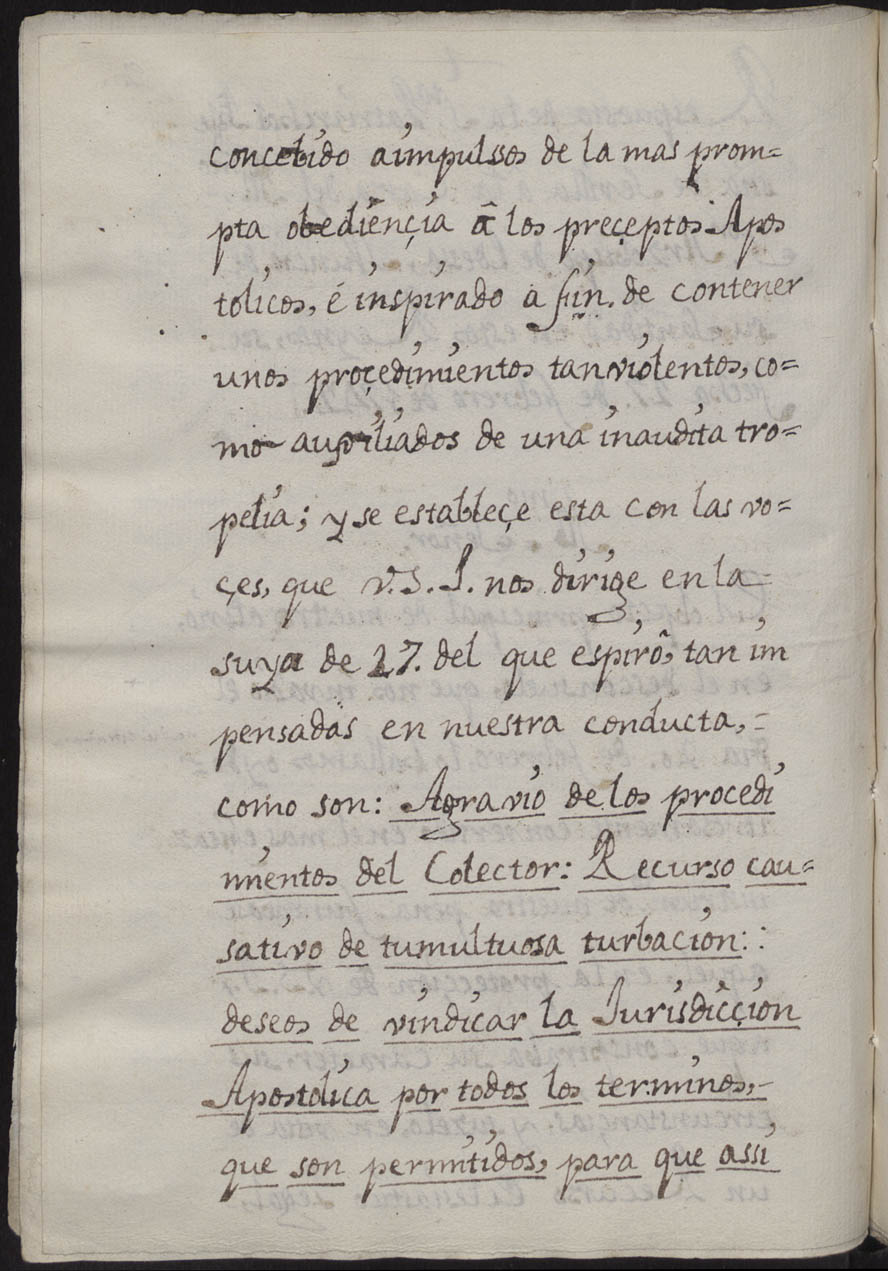 concebido a impulsos de la mas prom=
pta obediençia â los preçeptos Apos
tolicos, é inspirado a fin de contener
unos proçedimientos tan violentos, co=
mo auxiliados de una inaudita tro=
pelia; y se estableçe esta con las vo=
çes, que V.S.I. nos dirige en la
suya de 27. del que espirô, tan im
pensadas en nuestra conducta,=
como son: Agravio de los procedi
mientos del Colector: Recurso cau=
sativo de tumultuosa turbacion::
deseos de vindicar la Jurisdicçion
Apostolica por todos los terminos,-
que son permitidos, para que assi